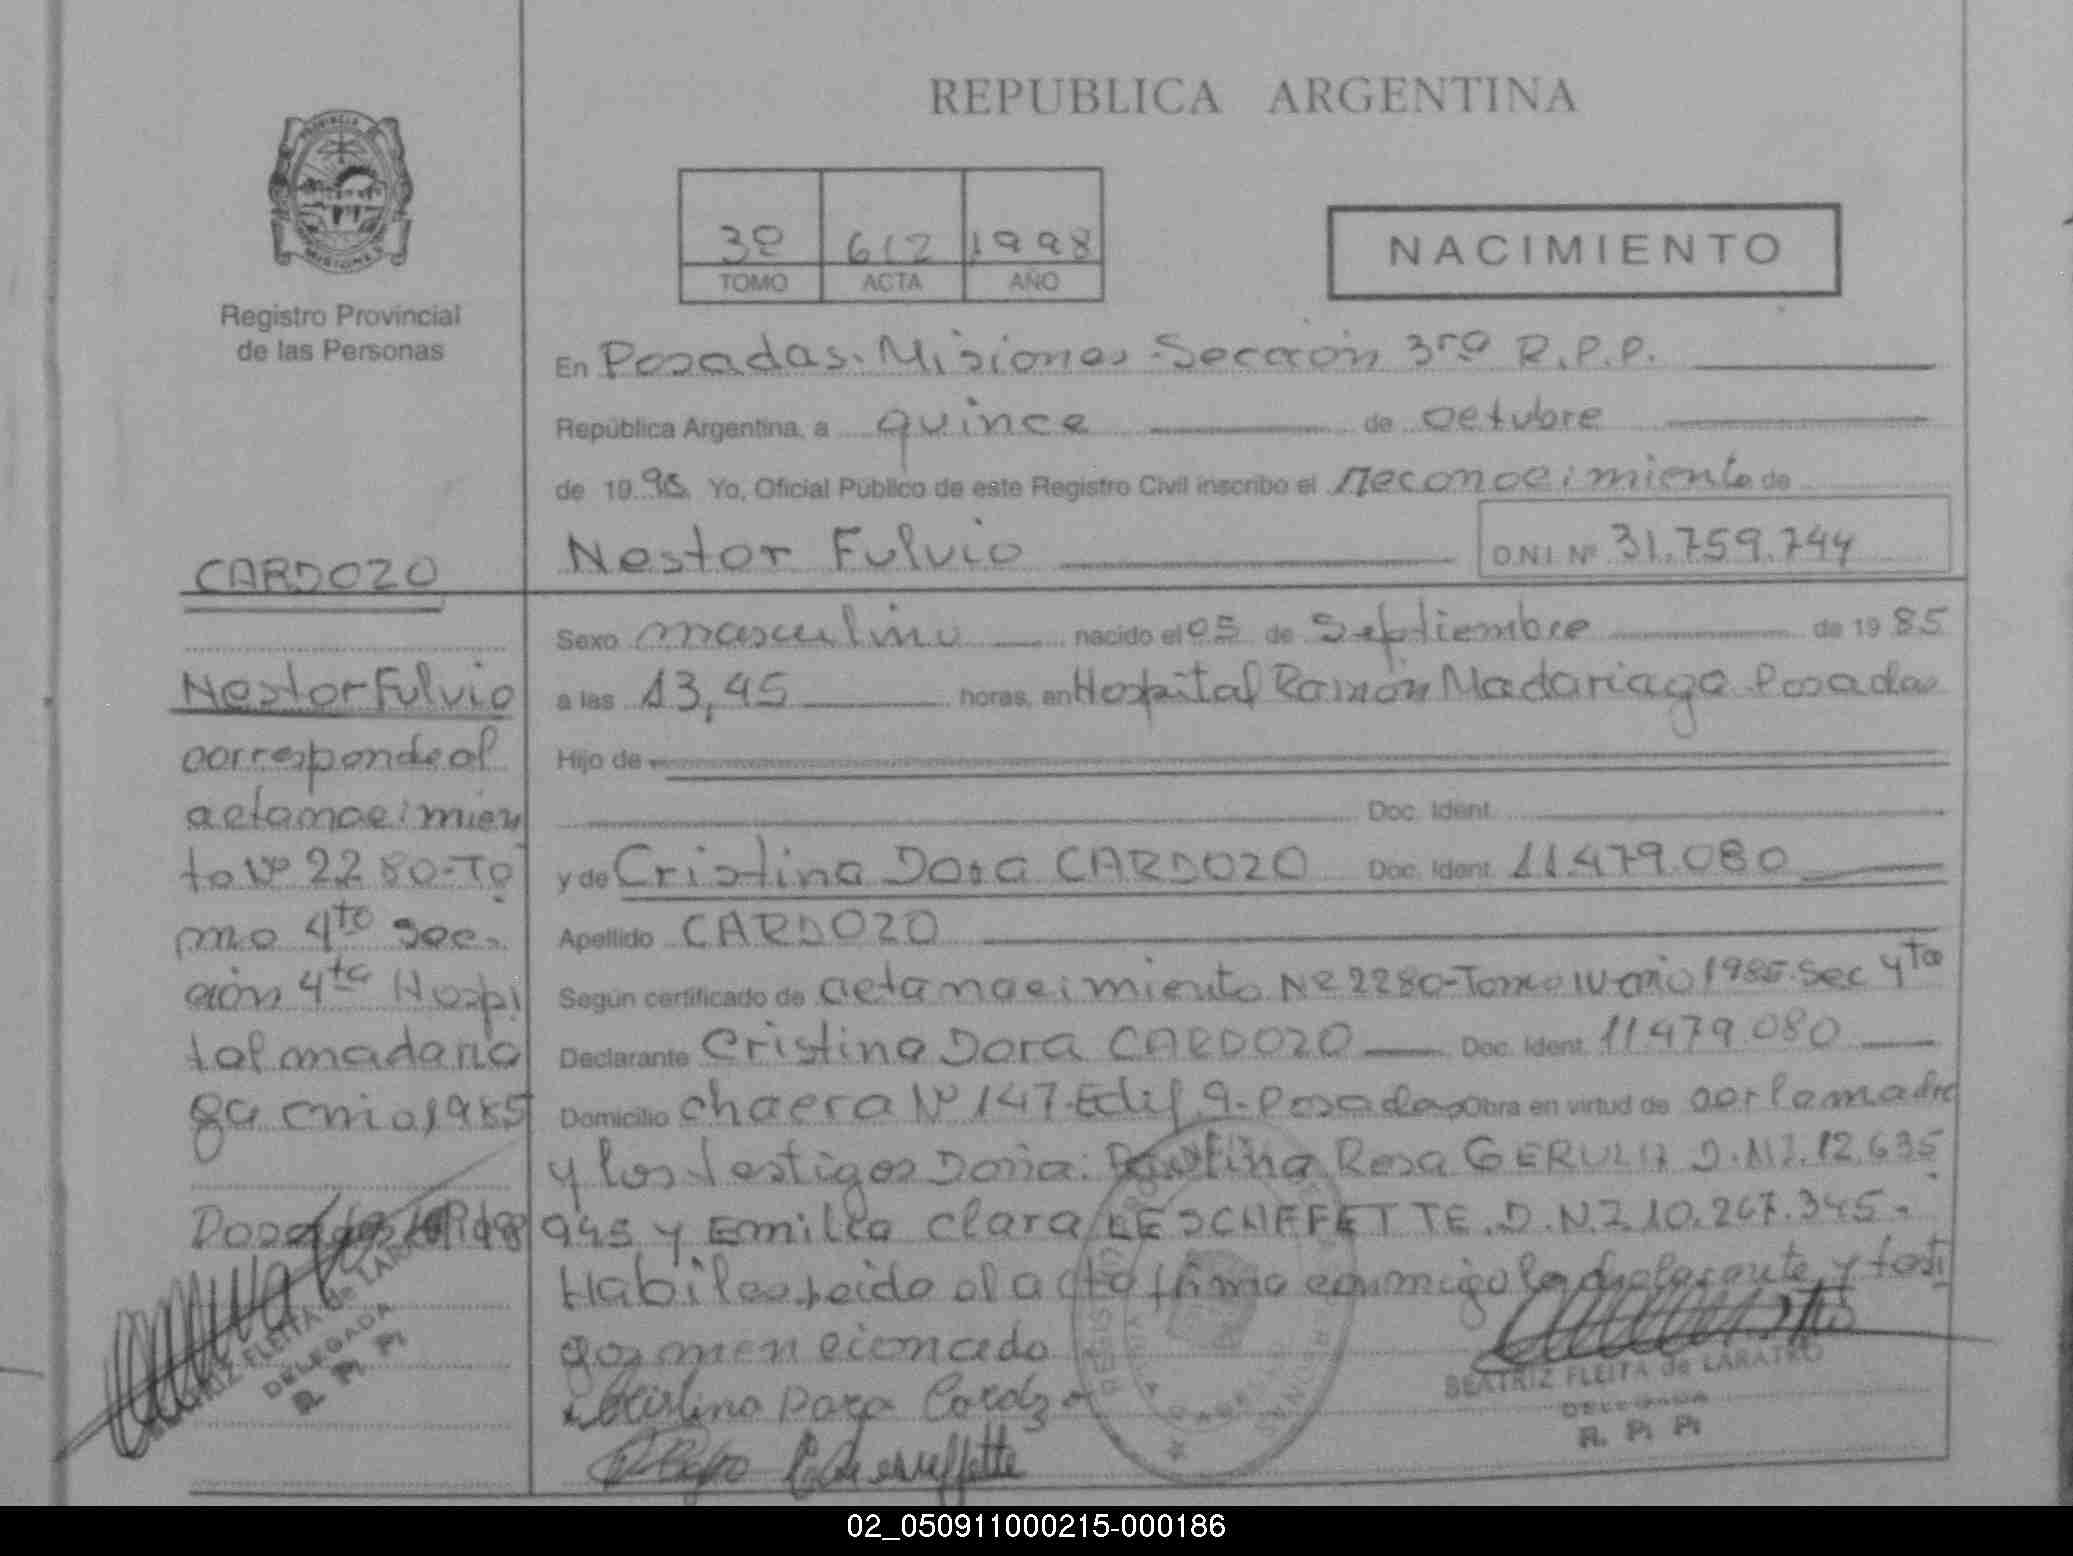 REPUBLICA ARGENTINA
PROVINCIA DE
MISIONES
Registro Provincial
de las Personas
3º 612 1998
TOMO ACTA AÑO
NACIMIENTO
En Posadas. Misiones Sección 3ra R.P.P.
República Argentina, a quince de octubre
de 1998 Yo, Oficial Público de este Registro Civil inscribo el Reconocimiento de
Nestor Fulvio D.N.I. Nº 31.759.744
CARDOZO
Nestor Fulvio
corresponde al
acta nacimien
to Nº 2280-To
mo 4to Sec.
ción 4ta Hospi
tal madaria
ga año 1985
Sexo masculino nacido el 05 de Septiembre de 1985
a las 13,45 horas, en Hospital Ramón Madariaga Posadas
Hijo de
Doc. Ident.
y de Cristina Dora CARDOZO Doc. Ident. 11.479.080
Apellido CARDOZO
Según certificado de acta nacimiento Nº 2280-Tomo IV año 1985. Sec 4ta
Declarante Cristina Dora CARDOZO Doc. Ident. 11.479.080
Domicilio chacra Nº 147-Edif 9-Posadas Obra en virtud de ser la madre
y los testigos Doña: Rosa D.N.I. 12.635
945 y Emilia Clara LESCHEFFETTE. D.N.I 10.267.345.
Habiles, leido el acta firma conmigo la declarante y testi
gos mencionado
Cristina Dora Cardozo
BEATRIZ FLEITA de LARATRO
DELEGADA
R. P. P.
BEATRIZ FLEITA de LARATRO
DELEGADA
R. P. P.
02_050911000215-000186